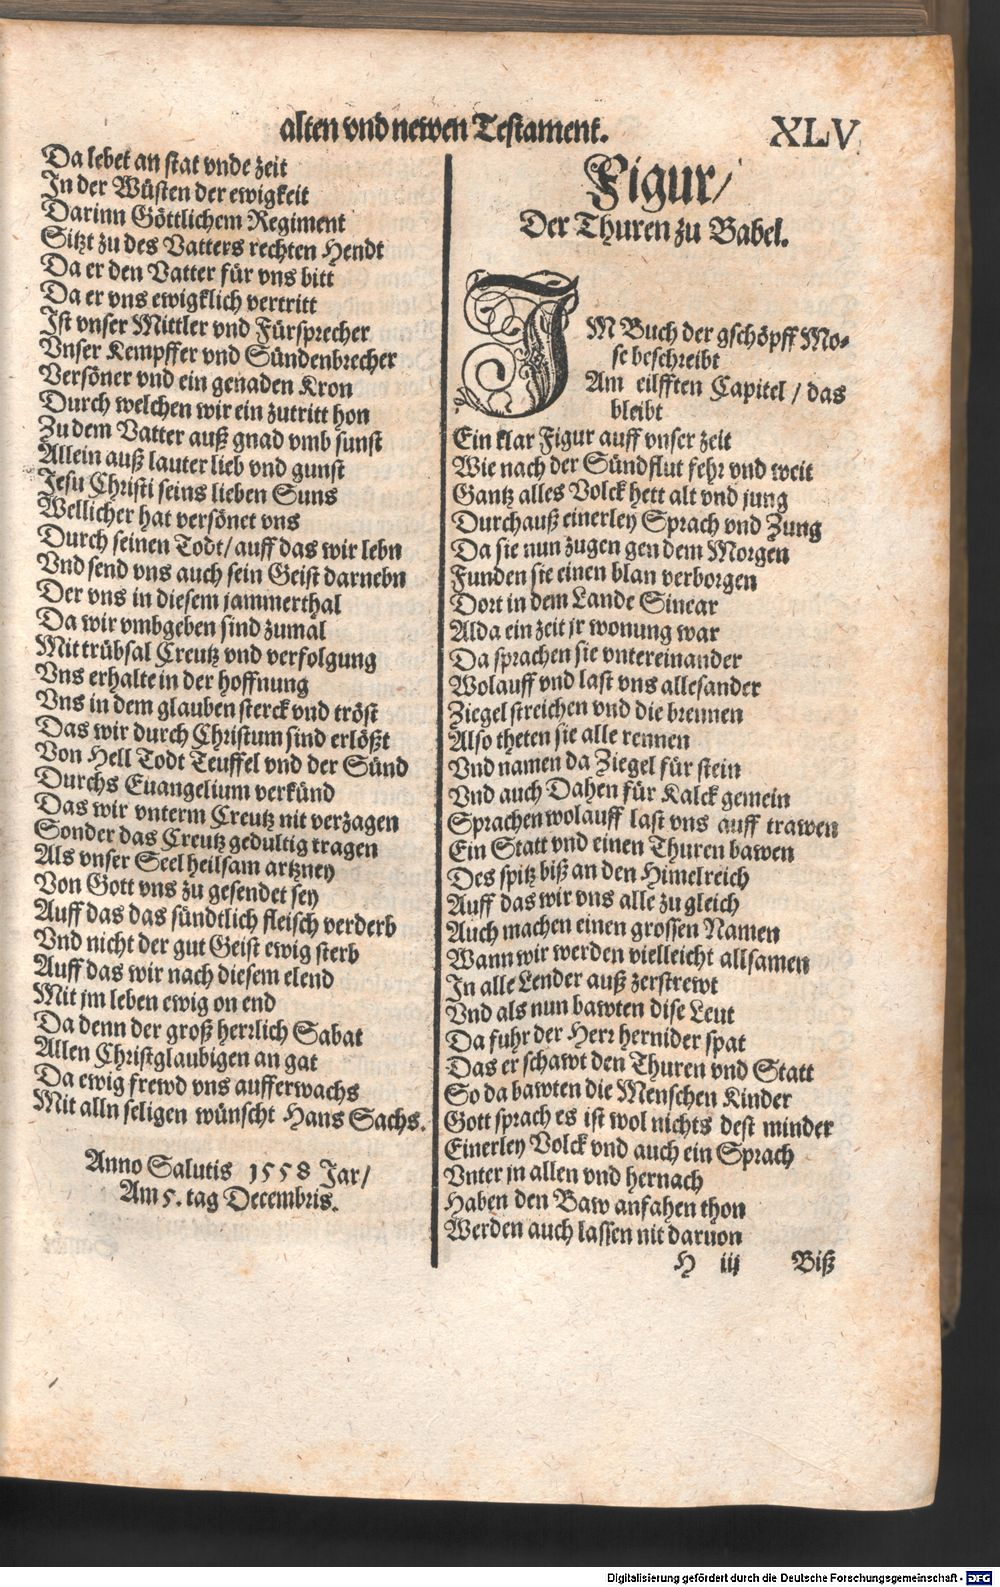 alten vnd newen Testament. XLV
Da lebet an stat vnde zeit
In der Wüsten der ewigkeit
Darinn Göttlichem Regiment
Sitzt zu des Vatters rechten Hendt
Da er den Vatter für vns bitt
Da er vns ewigklich vertritt
Ist vnser Mittler vnd Fürsprecher
Vnser Kempffer vnd Sündenbrecher
Versöner vnd ein genaden Kron
Durch welchen wir ein zutritt hon
Zu dem Vatter auß gnad vmb sunst
Allein auß lauter lieb vnd gunst
Jesu Christi seins lieben Suns
Wellicher hat versönet vns
Durch seinen Todt/ auff das wir lebn
Vnd send vns auch sein Geist darnebn
Der vns in diesem jammerthal
Da wir vmbgeben sind zumal
Mit trübsal Creutz vnd verfolgung
Vns erhalte in der hoffnung
Vns in dem glauben sterck vnd tröst
Das wir durch Christum sind erlößt
Von Hell Todt Teuffel vnd der Sünd
Durchs Euangelium verkünd
Das wir vnterm Creutz nit verzagen
Sonder das Creutz gedultig tragen
Als vnser Seel heilsam artzney
Von Gott vns zu gesendet sey
Auff das das sündtlich fleisch verderb
Vnd nicht der gut Geist ewig sterb
Auff das wir nach diesem elend
Mit jm leben ewig on end
Da denn der groß herrlich Sabat
Allen Christglaubigen an gat
Da ewig frewd vns aufferwachs
Mit alln seligen wünscht Hans Sachs.
Anno Salutis 1558 Jar/
Am 5. tag Decembris.
Figur/
Der Thuren zu Babel.
IM Buch der gschöpff Mo-
se beschreibt
Am eilfften Capitel / das
bleibt
Ein klar Figur auff vnser zeit
Wie nach der Sündflut fehr vnd weit
Gantz alles Volck hett alt vnd jung
Durchauß einerley Sprach vnd Zung
Da sie nun zugen gen dem Morgen
Funden sie einen blan verborgen
Dort in dem Lande Sinear
Alda ein zeit jr wonung war
Da sprachen sie vntereinander
Wolauff vnd last vns allesander
Ziegel streichen vnd die brennen
Also theten sie alle rennen
Vnd namen da Ziegel für stein
Vnd auch Dahen für Kalck gemein
Sprachen wolauff last vns auff trawen
Ein Statt vnd einen Thuren bawen
Des spitz biß an den Himelreich
Auff das wir vns alle zu gleich
Auch machen einen grossen Namen
Wann wir werden vielleicht allsamen
In alle Lender auß zerstrewt
Vnd als nun bawten dise Leut
Da fuhr der Herr hernider spat
Das er schawt den Thuren vnd Statt
So da bawten die Menschen Kinder
Gott sprach es ist wol nichts dest minder
Einerley Volck vnd auch ein Sprach
Vnter jn allen vnd hernach
Haben den Baw anfahen thon
Werden auch lassen nit daruon
H iij Biß
Digitalisierung gefördert durch die Deutsche Forschungsgemeinschaft - DFG